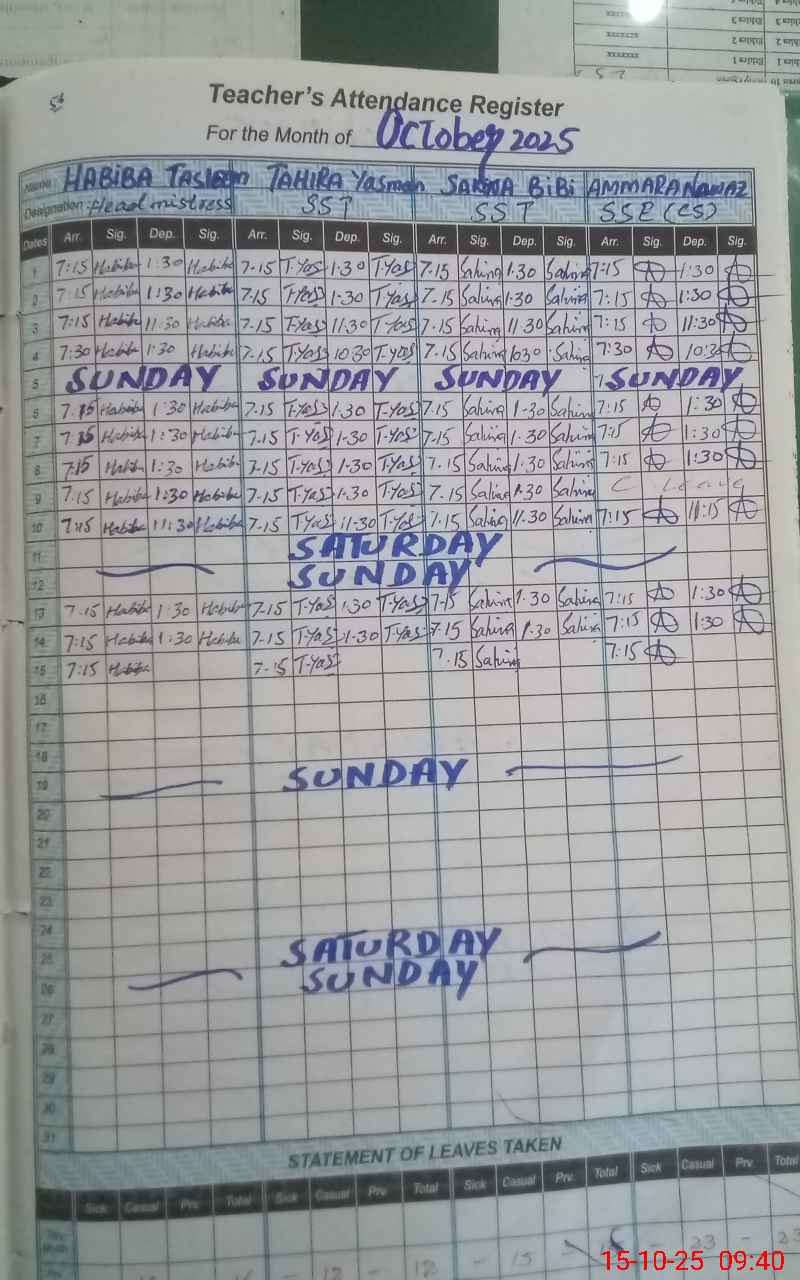 Teacher's Attendance Register
For the Month of October 2025
Name HABIBA Tasleem TAHIRA Yasmeen SAKINA BiBi AMMARA Nawaz
Designation: Head mistress SST SST SSE (CS)
Dates Arr. Sig. Dep. Sig. Arr. Sig. Dep. Sig. Arr. Sig. Dep. Sig. Arr. Sig. Dep. Sig.
1 7:15 Habiba 1:30 Habiba 7-15 T-Yas 1-30 T-Yas 7-15 Sakina 1-30 Sakina 7:15 1:30
2 7:15 Habiba 1:30 Habiba 7-15 T-Yas 1-30 T-Yas 7-15 Sakina 1-30 Sakina 7:15 1:30
3 7:15 Habiba 11:30 Habiba 7-15 T-Yas 11.30 T-Yas 7-15 Sakina 11.30 Sakina 7:15 11:30
4 7:30 Habiba 1:30 Habiba 7-15 T-Yas 10:30 T-Yas 7-15 Sakina 1030 Sakina 7:30 10:30
5 SUNDAY SUNDAY SUNDAY SUNDAY
6 7.15 Habiba 1:30 Habiba 7-15 T-Yas 1-30 T-Yas 7-15 Sakina 1-30 Sakina 7:15 1:30
7 7:15 Habiba 1:30 Habiba 7-15 T-Yas 1-30 T-Yas 7-15 Sakina 1-30 Sakina 7:15 1:30
8 7:15 Habiba 1:30 Habiba 7-15 T-Yas 1-30 T-Yas 7-15 Sakina 1.30 Sakina 7:15 1:30
9 7:15 Habiba 1:30 Habiba 7-15 T-Yas 1-30 T-Yas 7-15 Sakina 1-30 Sakina C Leave
10 7:15 Habiba 11:30 Habiba 7-15 T-Yas 11-30 T-Yas 7-15 Sakina 11.30 Sakina 7:15 11:15
11 SATURDAY
12 SUNDAY
13 7:15 Habiba 1:30 Habiba 7-15 T-Yas 1:30 T-Yas 7-15 Sakina 1-30 Sakina 7:15 1:30
14 7:15 Habiba 1:30 Habiba 7-15 T-Yas 1-30 T-Yas 7-15 Sakina 1-30 Sakina 7:15 1:30
15 7:15 Habiba 7-15 T-Yas 7-15 Sakina 7:15
16
17
18
19 SUNDAY
20
21
22
23
24
25 SATURDAY
26 SUNDAY
27
28
29
30
31
STATEMENT OF LEAVES TAKEN
Sick Casual Prv. Total Sick Casual Prv. Total Sick Casual Prv. Total Sick Casual Prv. Total
- 23 - 23
12 - 12 - 15
15-10-25 09:40